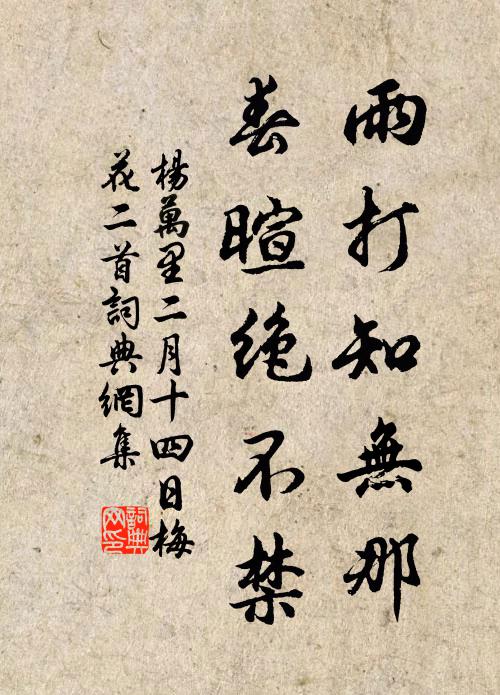 雨打知無那
春暄絶不禁
楊萬里二月十四日梅
花二首詞典網集
詞典
网印